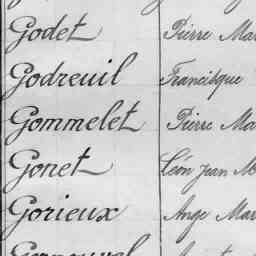 Godet Pierre Mar
Godreuil Francisque
Gommelet Pierre Ma
Gonet Léon Jean M
Gorieux Ange Mar